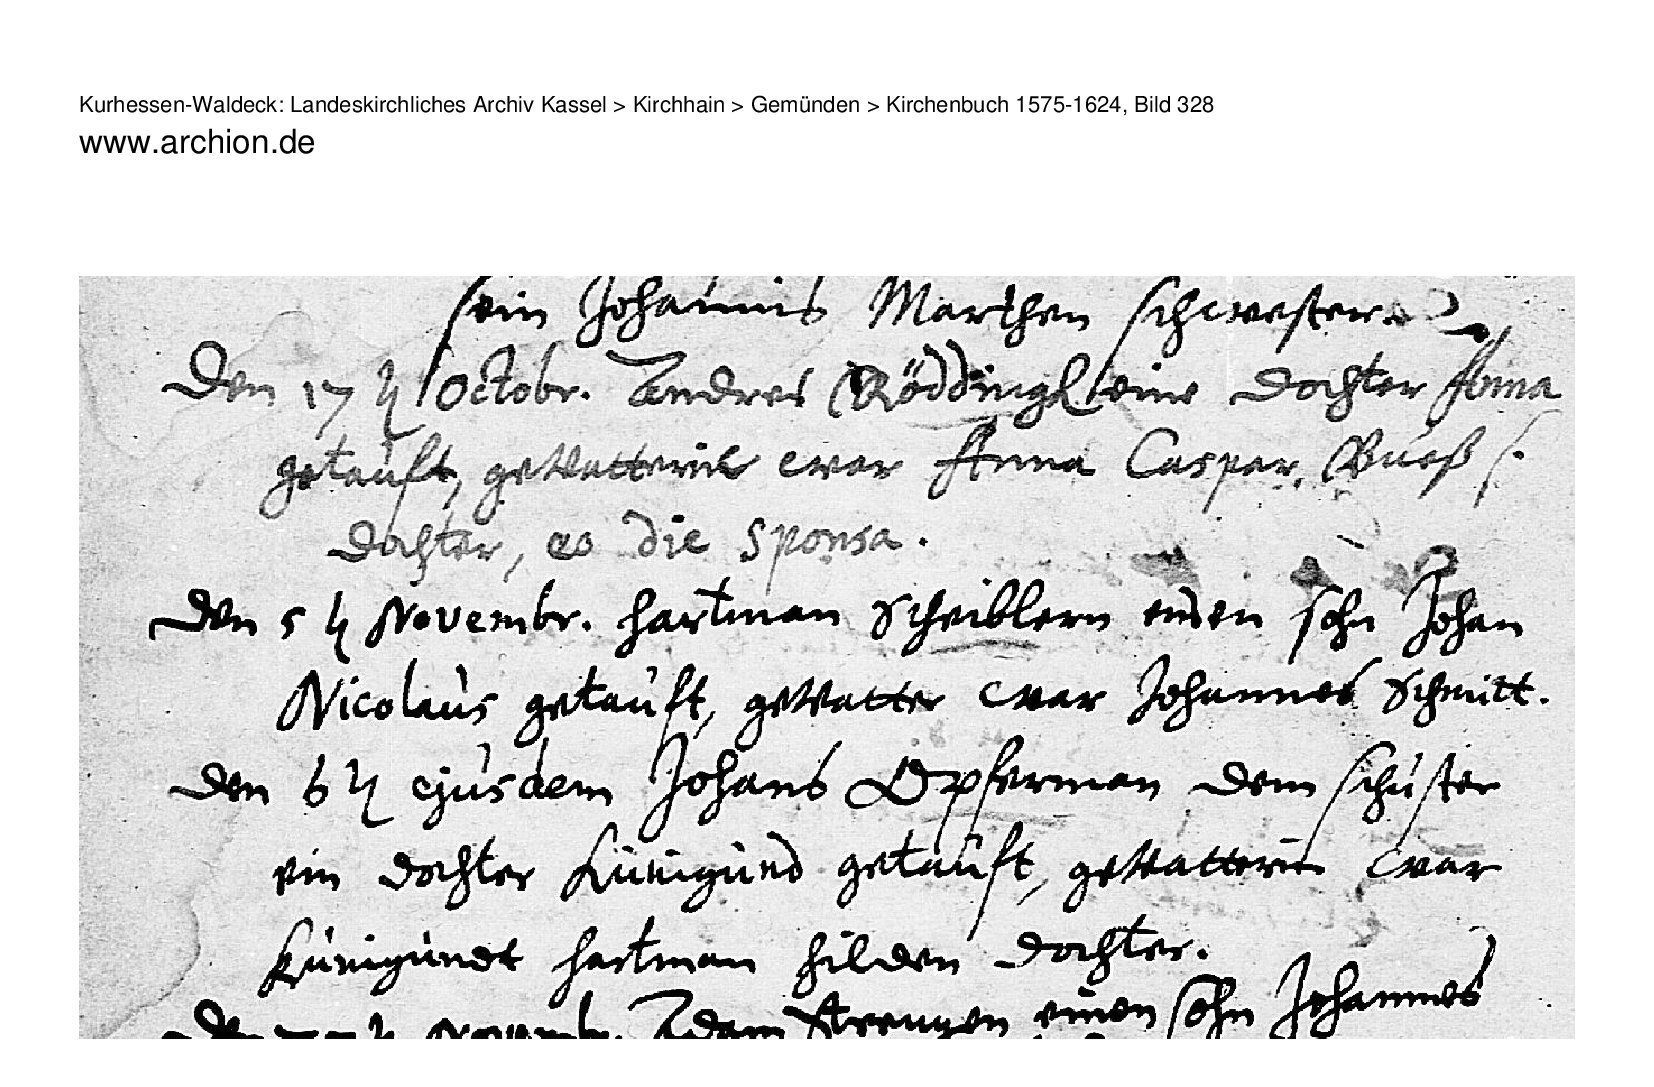 Kurhessen-Waldeck: Landeskirchliches Archiv Kassel > Kirchhain > Gemünden > Kirchenbuch 1575-1624, Bild 328
www.archion.de
sein Johannis Marthen schwester.
Den 17 t Octobr. Andres Röddingk eine dochter Anna
getauft, gevatterin war Anna Caspar s.
dochter, die Sponsa.
Den 5 t Novembr. Hartman Scheiblern einen sohn Johan
Nicolaus getauft, gevatter war Johannes Schmitt.
Den 6 t ejusdem Johans Opferman dem schuster
ein dochter Künigund getauft, gevatterin war
Künigundt Hartman Hilden dochter.
Den Novemb. Adam einen sohn Johannes